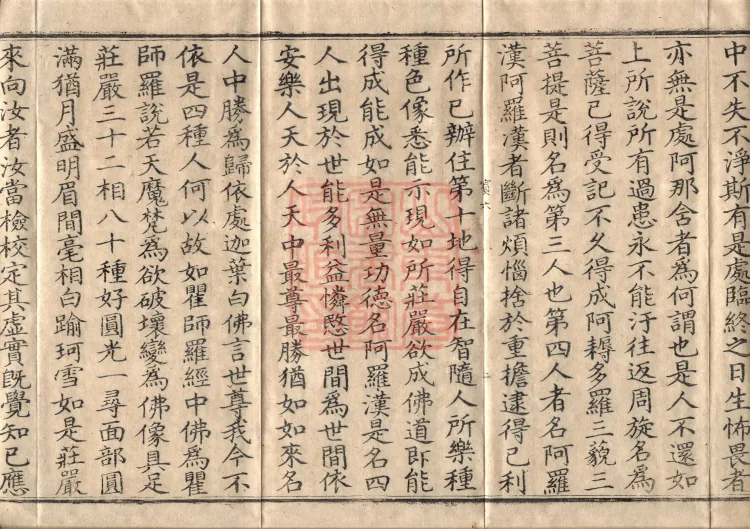 中不失不淨斯有是處臨終之日生怖畏者
亦無是處阿那含者為何謂也是人不還如
上所說所有過患永不能汙往返周旋名為
菩薩已得受記不久得成阿耨多羅三藐三
菩提是則名為第三人也第四人者名阿羅
漢阿羅漢者斷諸煩惱捨於重擔逮得己利
賓六
所作已辦住第十地得自在智隨人所樂種
種色像悉能示現如所莊嚴欲成佛道即能
得成能成如是無量功德名阿羅漢是名四
人出現於世能多利益憐愍世間為世間依
安樂人天於人天中最尊最勝猶如如來名
人中勝為歸依處迦葉白佛言世尊我今不
依是四種人何以故如瞿師羅經中佛為瞿
師羅說若天魔梵為欲破壞變為佛像具足
莊嚴三十二相八十種好圓光一尋面部圓
滿猶月盛明眉間毫相白踰珂雪如是莊嚴
來向汝者汝當檢校定其虛實既覺知已應